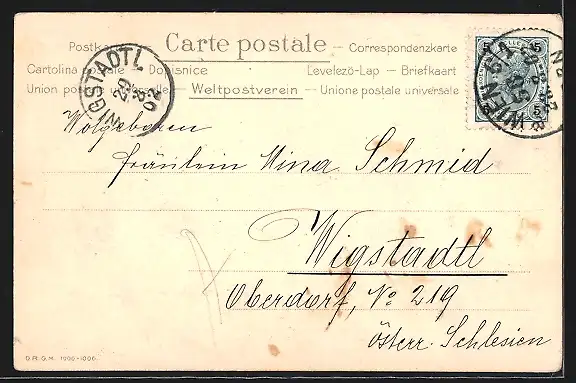 Postkarte Carte postale — Correspondenzkarte
Cartolina postale — Dopisnice Levelező-Lap — Briefkaart
Union postale universelle — Weltpostverein — Unione postale universale
WIGSTADTL
5 5
WIEN
Wolgeboren
Fräulein Mina Schmid
Wigstadtl
Oberdorf, No 219
österr. Schlesien
D.R.G.M. 1906-1006.